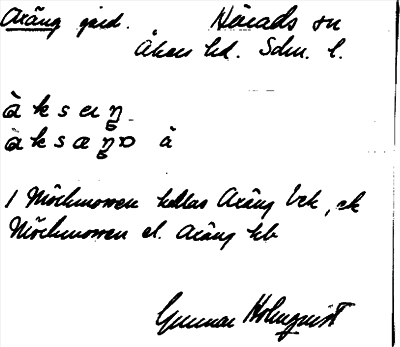 Axäng gård. Härads sn
Åkers hd. Sdm. l.
à k s æ ŋ
à k s æ ŋ ɒ å
I Mörkmossen kallas Axäng
Mörkmossen el. Axäng
Gunnar Holmqvist